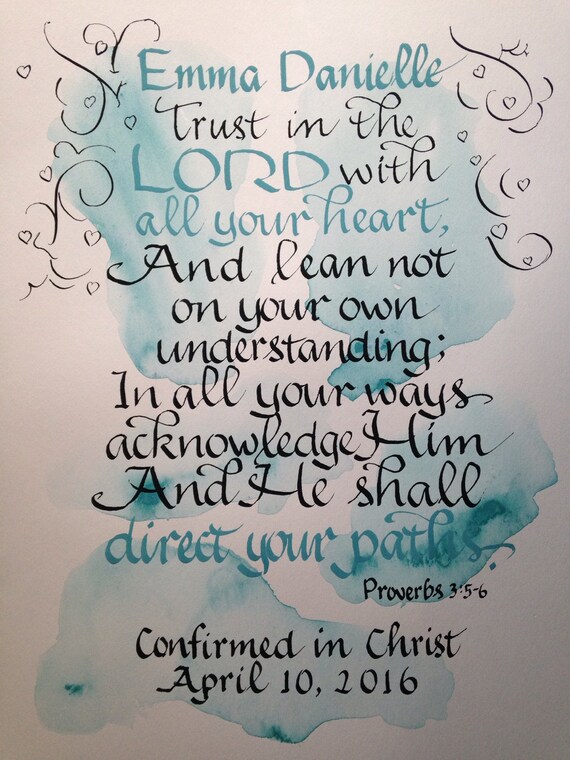 Emma Danielle
Trust in the
LORD with
all your heart,
And lean not
on your own
understanding;
In all your ways
acknowledge Him
And He shall
direct your paths.
Proverbs 3:5-6
Confirmed in Christ
April 10, 2016